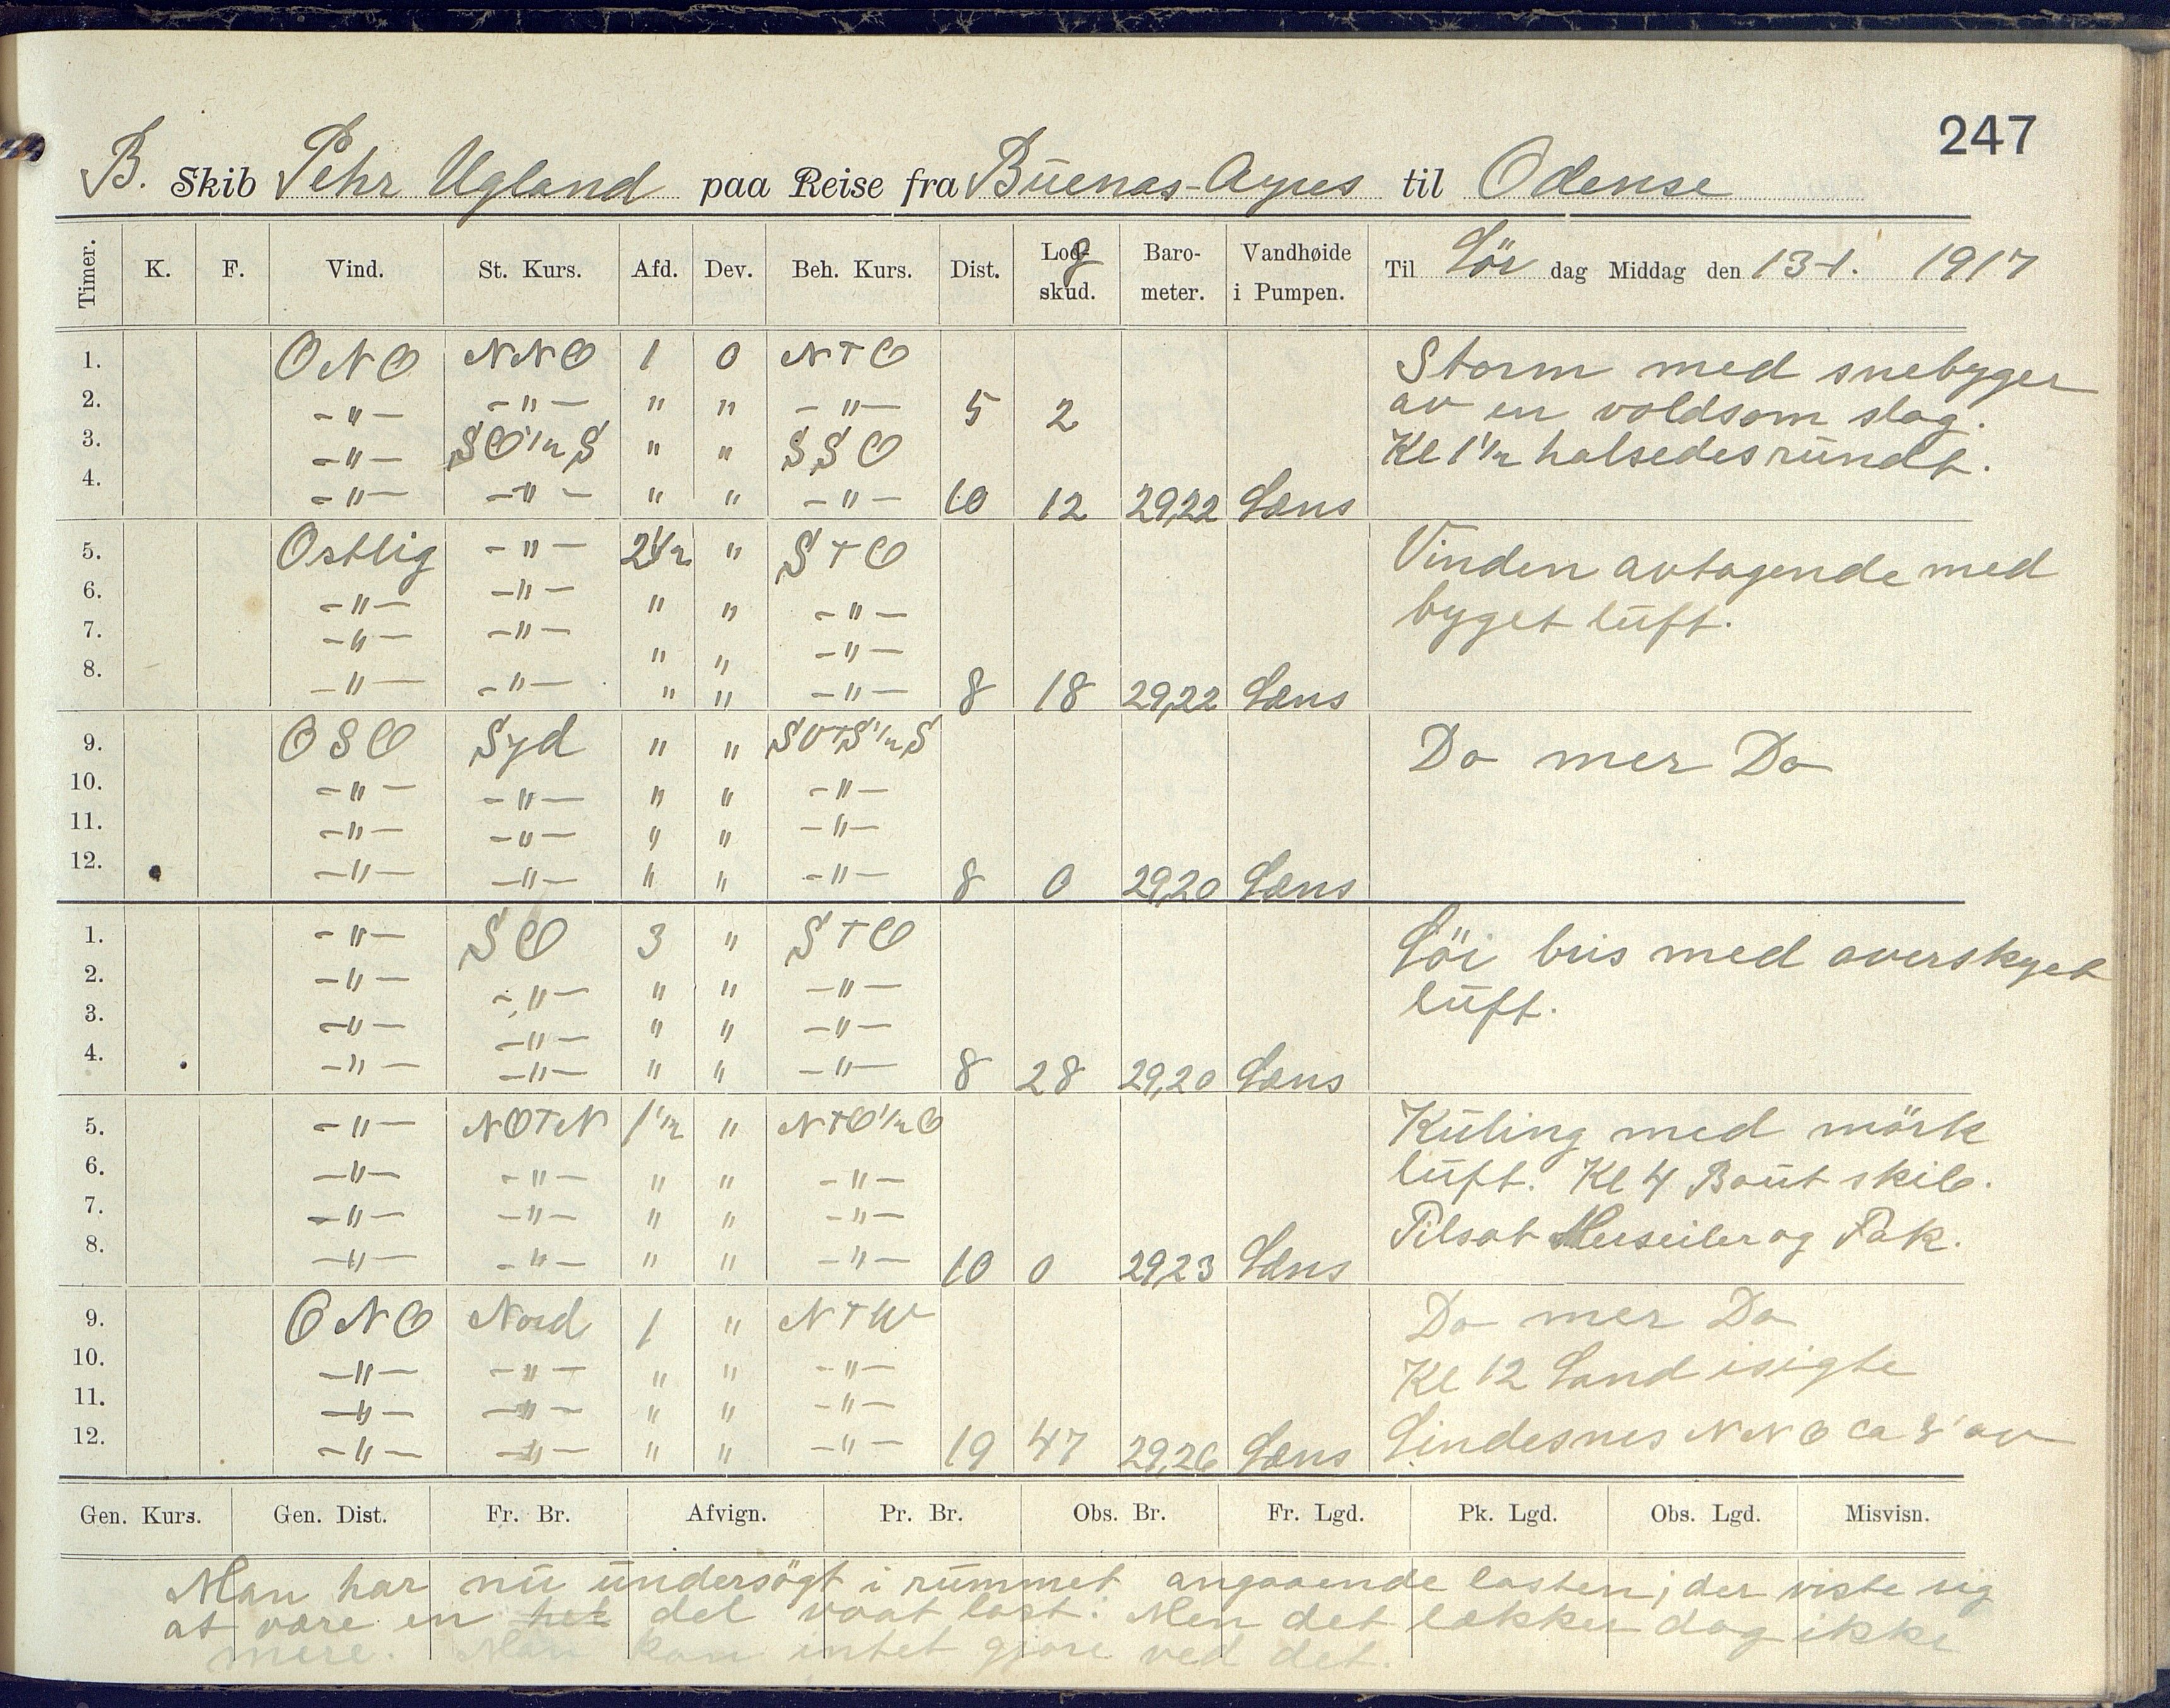 247
B. Skib Pehr Ugland paa Reise fra Buenas-Ayres til Odense
Timer. K. F. Vind. St. Kurs. Afd. Dev. Beh. Kurs. Dist. Log- skud. Baro- meter. Vandhøide i Pumpen. Til Lör dag Middag den 13-1. 1917
1. ONO NNO 1 0 NTO Storm med snebyger
2. -"- -"- " " -"- 5 2 av en voldsom slag.
3. -"- SO½S " " SSO Kl 1½ halsedes rundt.
4. -"- -"- " " -"- 10 12 29,22 Læns
5. Ostlig -"- 2½ " STO Vinden avtagende med
6. -"- -"- " " -"- byget luft.
7. -"- -"- " " -"-
8. -"- -"- " " -"- 8 18 29,22 Læns
9. OSO Syd " " SOTS½S Do mer Do
10. -"- -"- " " -"-
11. -"- -"- " " -"-
12. -"- -"- " " -"- 8 0 29,20 Læns
1. -"- SO 3 " STO Löi bris med overskyet
2. -"- -"- " " -"- luft.
3. -"- -"- " " -"-
4. -"- -"- " " -"- 8 28 29,20 Læns
5. -"- NOTN 1½ " NTO½O Kuling med mörk
6. -"- -"- " " -"- luft. Kl 4 Baut skib.
7. -"- -"- " " -"- Tilsat Merseiler og Fok.
8. -"- -"- " " -"- 10 0 29,23 Læns
9. ONO Nord 1 " NTW Do mer Do
10. -"- -"- " " -"- Kl 12 Land isigte
11. -"- -"- " " -"-
12. -"- -"- " " -"- 19 47 29,26 Læns Lindesnes NNO ca 8' av
Gen. Kurs. Gen. Dist. Fr. Br. Afvign. Pr. Br. Obs. Br. Fr. Lgd. Pk. Lgd. Obs. Lgd. Misvisn.
Man har nu undersögt i rummet angaaende lasten; der viste sig
at være en hel del vaat last. Men det lækker dog ikke
mere. Man kan intet gjøre ved det.